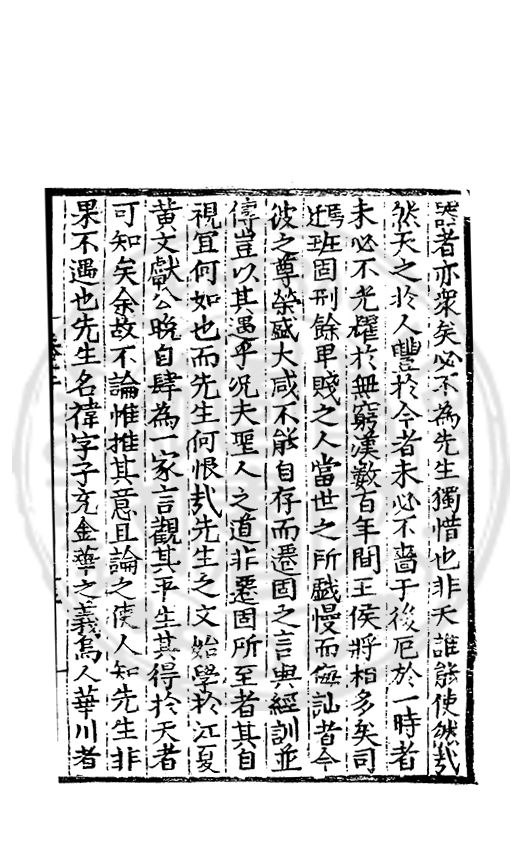 器者亦衆矣必不為先生獨惜也非天誰能使然哉
然天之於人豐於今者未必不嗇于後厄於一時者
未必不光耀於無窮漢數百年間王侯將相多矣司
馬遷班固刑餘卑賤之人當世之所戲慢而侮訕者今
彼之尊榮盛大咸不能自存而遷固之言與經訓並
傳豈以其遇乎况夫聖人之道非遷固所至者其自
視宜何如也而先生何恨哉先生之文始學於江夏
黄文獻公晚自肆為一家言觀其平生其得於天者
可知矣余故不論惟推其意且論之使人知先生非
果不遇也先生名禕字子充金華之義烏人華川者